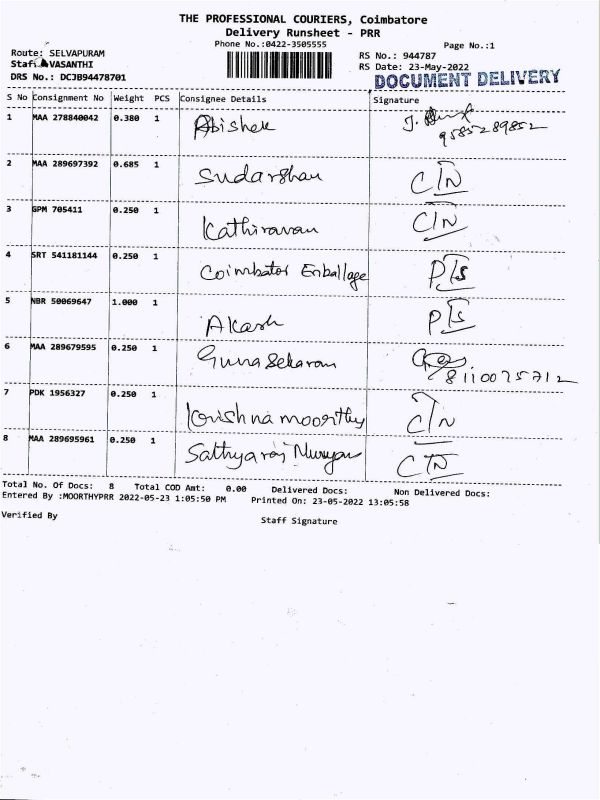 THE PROFESSIONAL COURIERS, Coimbatore
Delivery Runsheet - PRR
Phone No.:0422-3505555
Page No.:1
Route: SELVAPURAM
RS No.: 944787
Staff: VASANTHI
RS Date: 23-May-2022
DRS No.: DCJB94478701
DOCUMENT DELIVERY
S No Consignment No Weight PCS Consignee Details Signature
1 MAA 278840042 0.380 1 Abishek J. 9585289852
2 MAA 289697392 0.685 1 Sudarshan C/N
3 GPM 705411 0.250 1 Kathiravan C/N
4 SRT 541181144 0.250 1 Coimbator Enballage P/s
5 NBR 50069647 1.000 1 Akash P/s
6 MAA 289679595 0.250 1 Guna Sekaran 8110075712
7 PDK 1956327 0.250 1 krishna moorthy C/N
8 MAA 289695961 0.250 1 Sathyaraj Murugan C/N
Total No. Of Docs: 8 Total COD Amt: 0.00 Delivered Docs: Non Delivered Docs:
Entered By :MOORTHYPRR 2022-05-23 1:05:50 PM Printed On: 23-05-2022 13:05:58
Verified By
Staff Signature